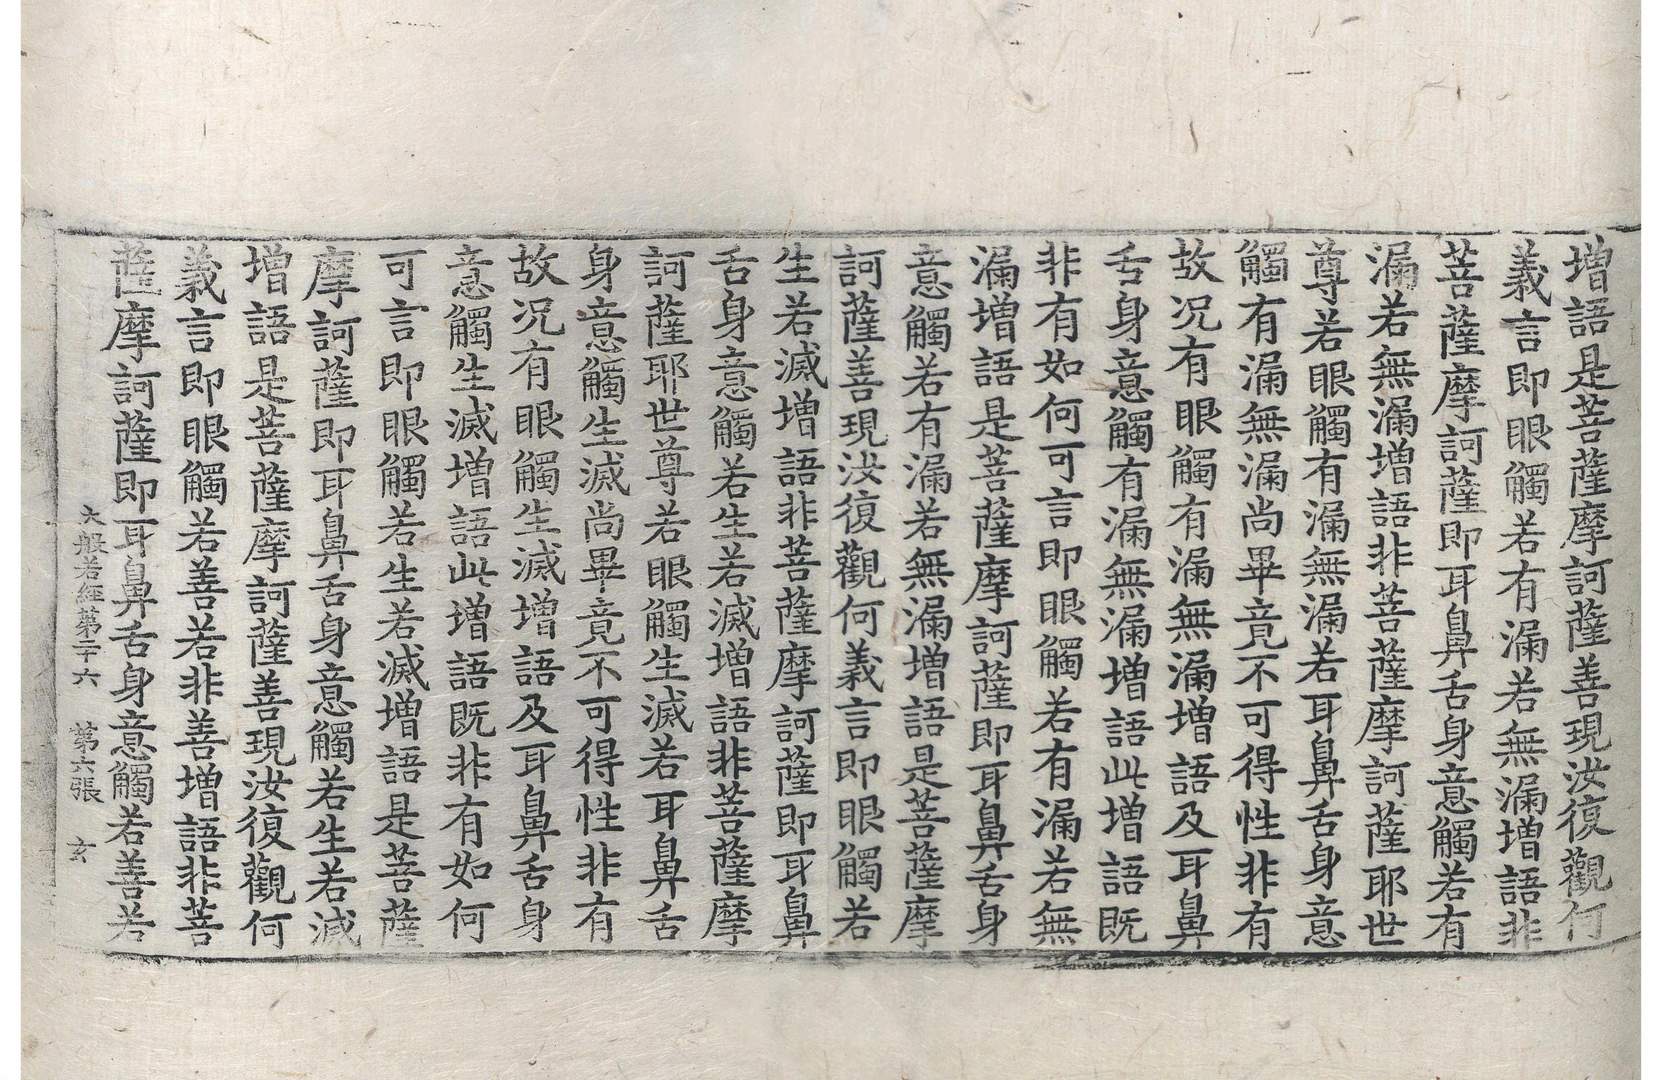 増語是菩薩摩訶薩善現汝復觀何
義言即眼觸若有漏若無漏増語非
菩薩摩訶薩即耳鼻舌身意觸若有
漏若無漏増語非菩薩摩訶薩耶世
尊若眼觸有漏無漏若耳鼻舌身意
觸有漏無漏尚畢竟不可得性非有
故況有眼觸有漏無漏増語及耳鼻
舌身意觸有漏無漏増語此増語既
非有如何可言即眼觸若有漏若無
漏増語是菩薩摩訶薩即耳鼻舌身
意觸若有漏若無漏増語是菩薩摩
訶薩善現汝復觀何義言即眼觸若
生若滅増語非菩薩摩訶薩即耳鼻
舌身意觸若生若滅増語非菩薩摩
訶薩耶世尊若眼觸生滅若耳鼻舌
身意觸生滅尚畢竟不可得性非有
故况有眼觸生滅増語及耳鼻舌身
意觸生滅増語此増語既非有如何
可言即眼觸若生若滅増語是菩薩
摩訶薩即耳鼻舌身意觸若生若滅
増語是菩薩摩訶薩善現汝復觀何
義言即眼觸若善若非善増語非菩
薩摩訶薩即耳鼻舌身意觸若善若
大般若經第二十六 第六張 玄